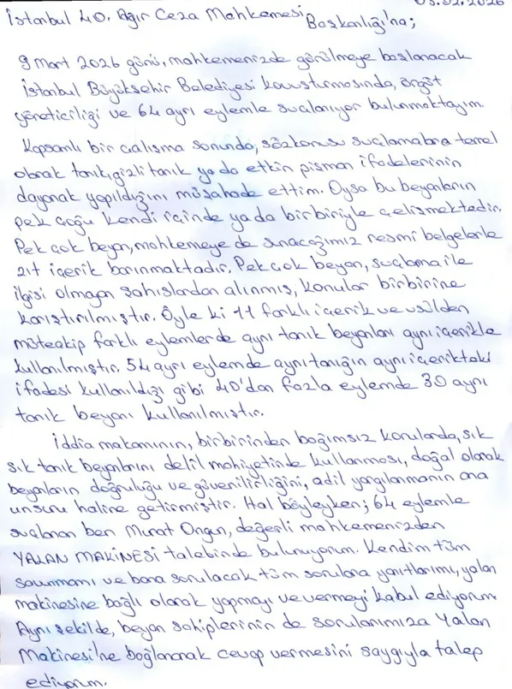 03.02.2026
İstanbul 40. Ağır Ceza Mahkemesi Başkanlığı'na;
9 Mart 2026 günü, mahkemenizde görülmeye başlanacak
İstanbul Büyükşehir Belediyesi kovuşturmasında, örgüt
yöneticiliği ve 64 ayrı eylemle suçlanıyor bulunmaktayım.
Kapsamlı bir çalışma sonunda, sözkonusu suçlamalara temel
olarak tanık, gizli tanık ya da etkin pişman ifadelerinin
dayanak yapıldığını müşahade ettim. Oysa bu beyanların
pek çoğu kendi içinde ya da birbiriyle çelişmektedir.
Pek çok beyan, mahkemeye de sunacağımız resmi belgelerle
zıt içerik barınmaktadır. Pek çok beyan, suçlama ile
ilgisi olmayan şahıslardan alınmış, konular birbirine
karıştırılmıştır. Öyle ki 11 farklı içerik ve usülden
müteakip farklı eylemlerde aynı tanık beyanları aynı içerikle
kullanılmıştır. 54 ayrı eylemde aynı tanığın aynı içerikteki
ifadesi kullanıldığı gibi 40'dan fazla eylemde 30 ayrı
tanık beyanı kullanılmıştır.
İddia makamının, birbirinden bağımsız konularda, sık
sık tanık beyanlarını delil mahiyetinde kullanması, doğal olarak
beyanların doğruluğu ve güvenilirliğini, adil yargılanmanın ana
unsuru haline getirmiştir. Hal böyleyken; 64 eylemle
suçlanan ben Murat Ongun, değerli mahkemenizden
YALAN MAKİNESİ talebinde bulunuyorum. Kendim tüm
savunmamı ve bana sorulacak tüm sorulara yanıtlarımı, yalan
makinesine bağlı olarak yapmayı ve vermeyi kabul ediyorum
Aynı şekilde, beyan sahiplerinin de sorularımıza Yalan
Makinesi'ne bağlanarak cevap vermesini saygıyla talep
ediyorum.